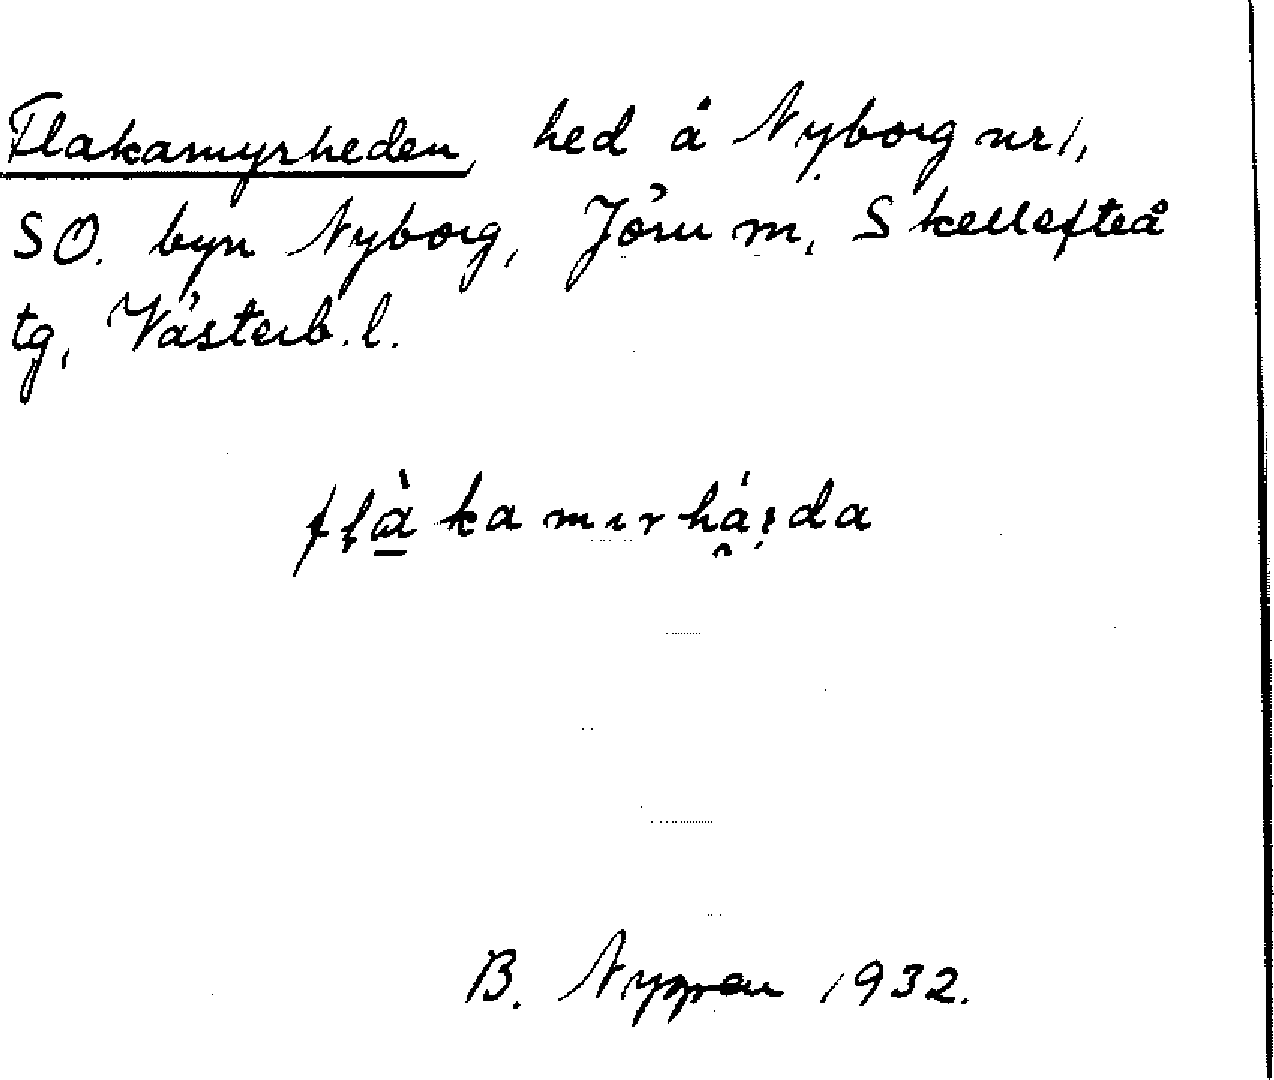 Flakamyrheden, hed å Nyborg nr 1,
SO. byn Nyborg, Jörn m, Skellefteå
tg, Västerb. l.
B. Nygren 1932.